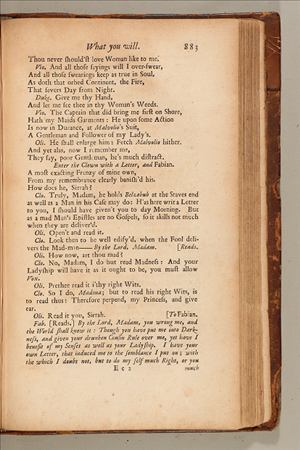 What you will. 883
Thou never should'st love Woman like to me.
Vio. And all those sayings will I over-swear,
And all those swearings keep as true in Soul,
As doth that orbed Continent, the Fire,
That severs Day from Night.
Duke. Give me thy Hand,
And let me see thee in thy Woman's Weeds.
Vio. The Captain that did bring me first on Shore,
Hath my Maids Garments: He upon some Action
Is now in Durance, at Malvolio's Suit,
A Gentleman and Follower of my Lady's.
Oli. He shall enlarge him: Fetch Malvolio hither.
And yet alas, now I remember me,
They say, poor Gentleman, he's much distract.
Enter the Clown with a Letter, and Fabian.
A most exacting Frenzy of mine own,
From my remembrance clearly banish'd his.
How does he, Sirrah?
Clo. Truly, Madam, he holds Belzebub at the Staves end
as well as a Man in his Case may do: H'as here writ a Letter
to you, I should have given't you to day Morning. But
as a mad Man's Epistles are no Gospels, so it skills not much
when they are deliver'd.
Oli. Open't and read it.
Clo. Look then to be well edify'd, when the Fool deli-
vers the Mad-man—— By the Lord, Madam. [Reads.
Oli. How now, art thou mad?
Clo. No, Madam, I do but read Madness: And your
Ladyship will have it as it ought to be, you must allow
Vox.
Oli. Prethee read it i'thy right Wits.
Clo. So I do, Madona; but to read his right Wits, is
to read thus: Therefore perpend, my Princess, and give
ear.
Oli. Read it you, Sirrah. [To Fabian.
Fab. [Reads.] By the Lord, Madam, you wrong me, and
the World shall know it: Though you have put me into Dark-
ness, and given your drunken Cousin Rule over me, yet have I
benefit of my Senses as well as your Ladyship. I have your
own Letter, that induced me to the semblance I put on; with
the which I doubt not, but to do my self much Right, or you
E e 2 much